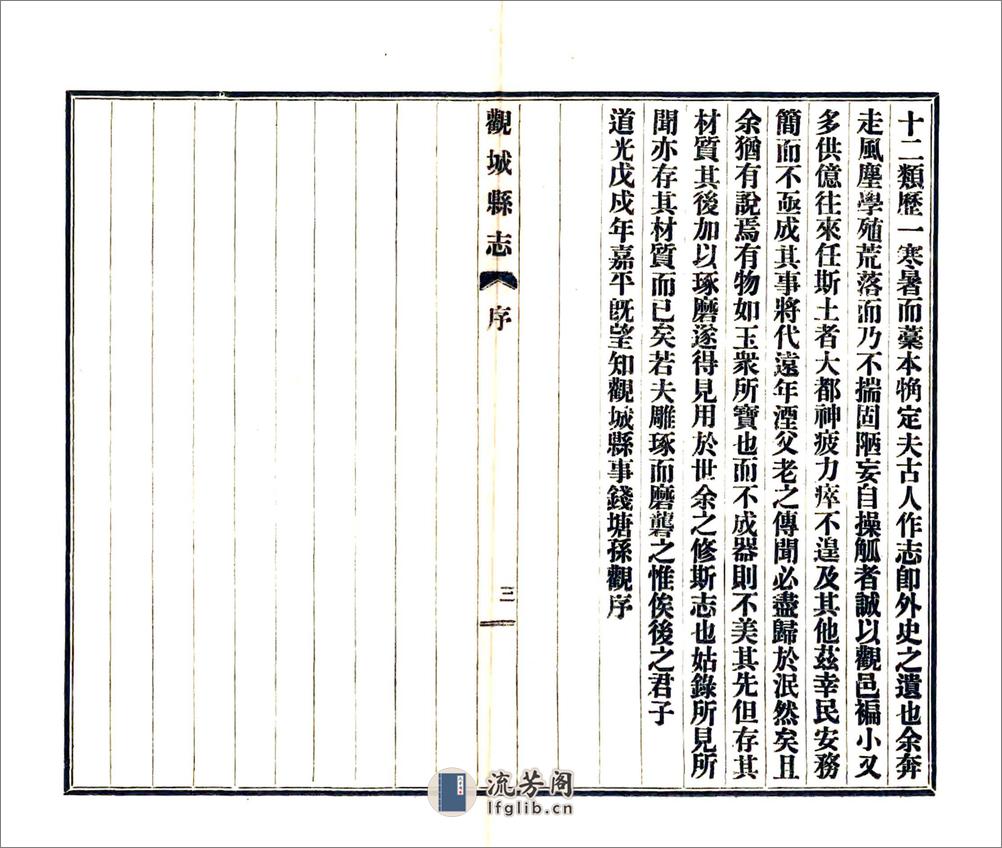 十二類歷一寒暑而藁本觕定夫古人作志卽外史之遺也余奔
走風塵學殖荒落而乃不揣固陋妄自操觚者誠以觀邑褊小又
多供億往來任斯土者大都神疲力瘁不遑及其他茲幸民安務
簡而不亟成其事將代遠年湮父老之傳聞必盡歸於泯然矣且
余猶有說焉有物如玉衆所寶也而不成器則不美其先但存其
材質其後加以琢磨遂得見用於世余之修斯志也姑錄所見所
聞亦存其材質而已矣若夫雕琢而磨礱之惟俟後之君子
道光戊戌年嘉平旣望知觀城縣事錢塘孫觀序
觀城縣志 序 三
流芳阁
lfglib.cn